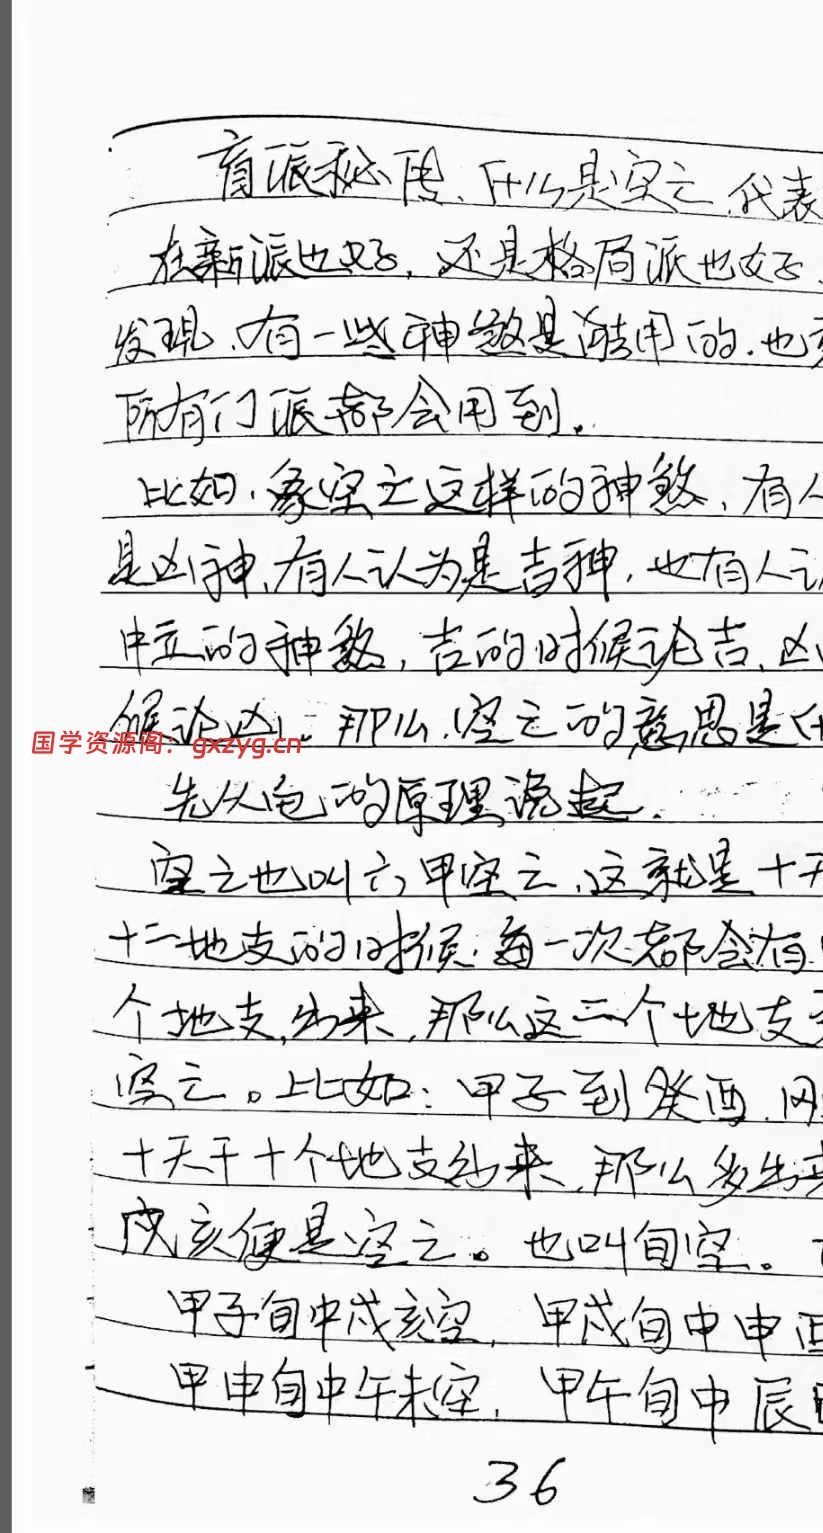 盲派秘传、什么是空亡,代表
在新派也好,还是格局派也好,
发现、有一些神煞是通用的.也
所有门派都会用到.
比如、象空亡这样的神煞、有人
是凶神、有人认为是吉神,也有人认
中立的神煞,吉的时候论吉、凶
候论凶.那么、空亡的意思是什
国学资源阁:gxzyg.cn
先从它的原理说起.
空亡也叫六甲空亡、这就是十天
十二地支的时候.每一次都会有
个地支,出来,那么这二个地支
空亡。比如:甲子到癸酉、刚
十天干十个地支出来、那么多出来
戌亥便是空亡。也叫旬空。
甲子旬中戌亥空,甲戌旬中申酉
甲申旬中午未空,甲午旬中辰
36